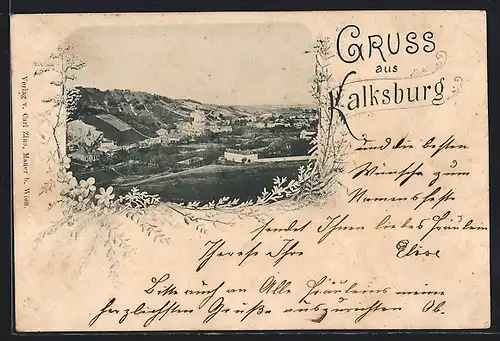 GRUSS
aus
Kalksburg
und die besten
Wünsche zum
Namensfeste
sendet Ihnen liebes Fräulein
Therese Ihre Elise
Bitte auch an Alle Fräuleins meine
herzlichsten Grüße auszurichten Ob.
Verlag v. Carl Zins, Mauer b. Wien.